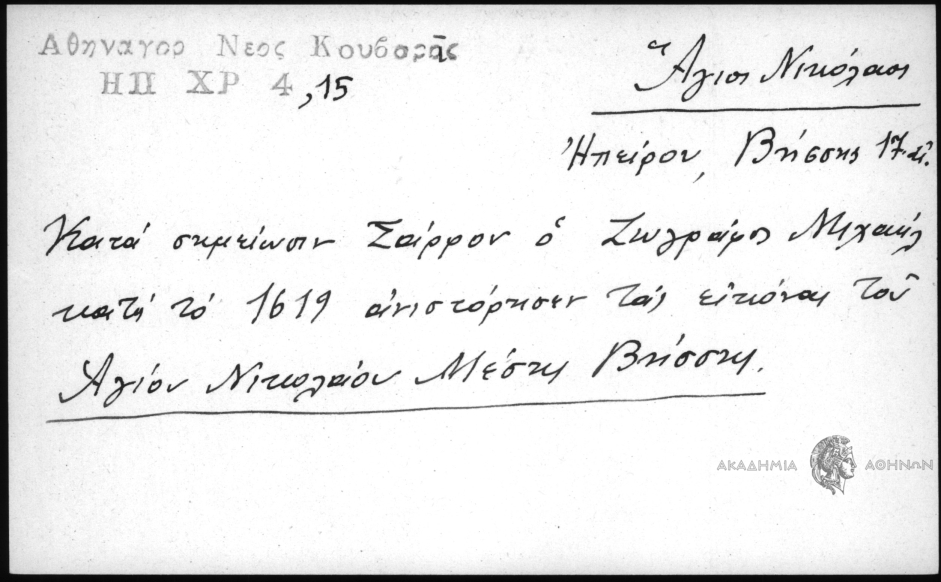 Αθηναγορ Νεος Κουβαρᾶς
ΗΠ ΧΡ 4,15
Ἅγιος Νικόλαος
Ἠπείρου, Βήσσης 17 αἰ.
Κατά σημείωσιν Σάρρου ὁ ζωγράφος Μιχαήλ
κατά τό 1619 ἀνιστόρησεν τάς εἰκόνας τοῦ
Ἁγίου Νικολάου Μέσης Βήσσης.
ΑΚΑΔΗΜΙΑ ΑΘΗΝΩΝ